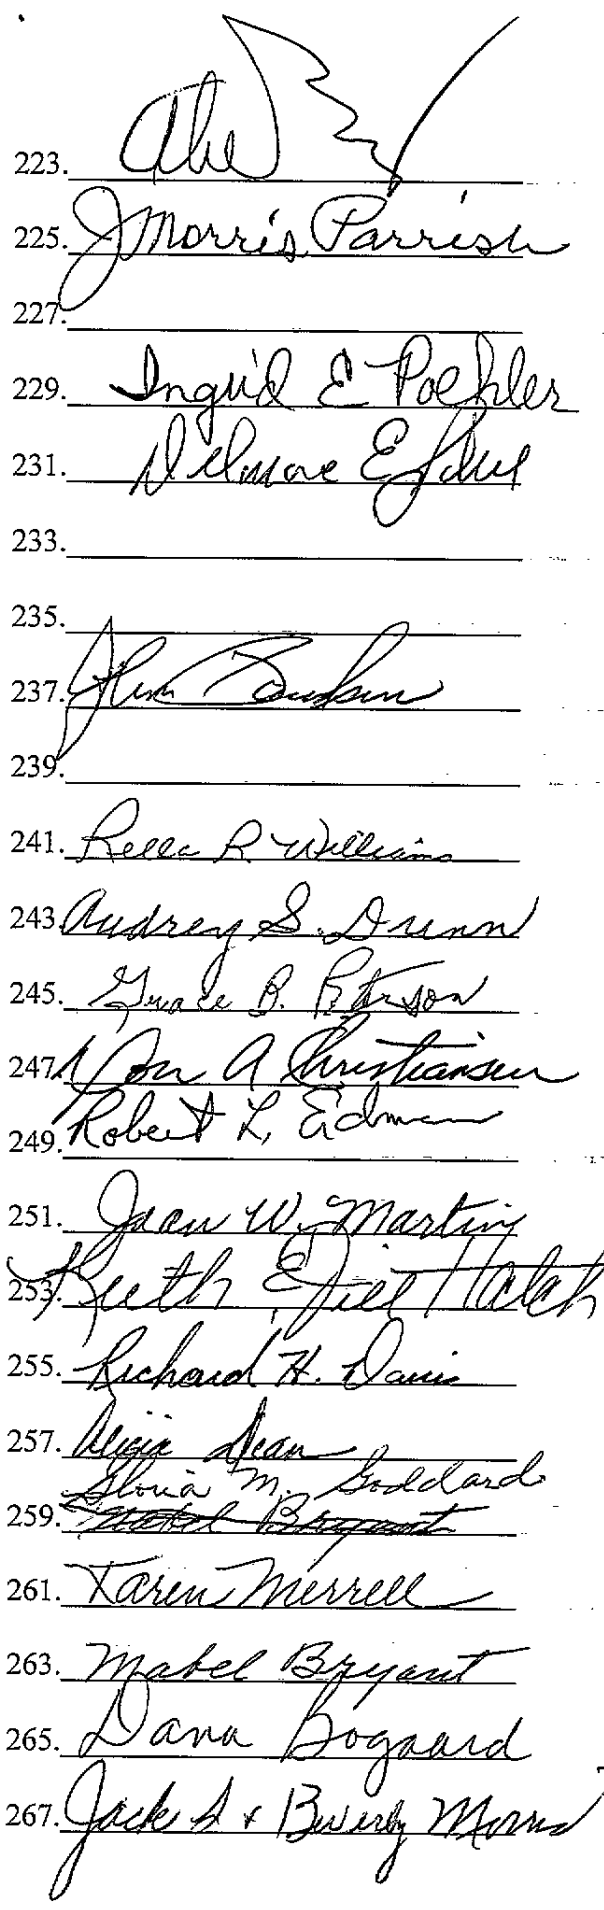 223. Abe
225. J Morris Parrish
227.
229. Ingrid E Poehler
231. Delmore E
233.
235.
237.
239.
241. Rella R Williams
243. Audrey S. Dunn
245. Grace B. Peterson
247. Don A Christiansen
249. Robert L. Erdman
251. Jean W. Martin
253. Keith & Jill Hatch
255. Richard H. Davis
257. Alicia Dean
Gloria M. Goddard
259. Mabel Bryant
261. Karen Merrell
263. Mabel Bryant
265. Dana Bogaard
267. Jack S & Beverly Morris